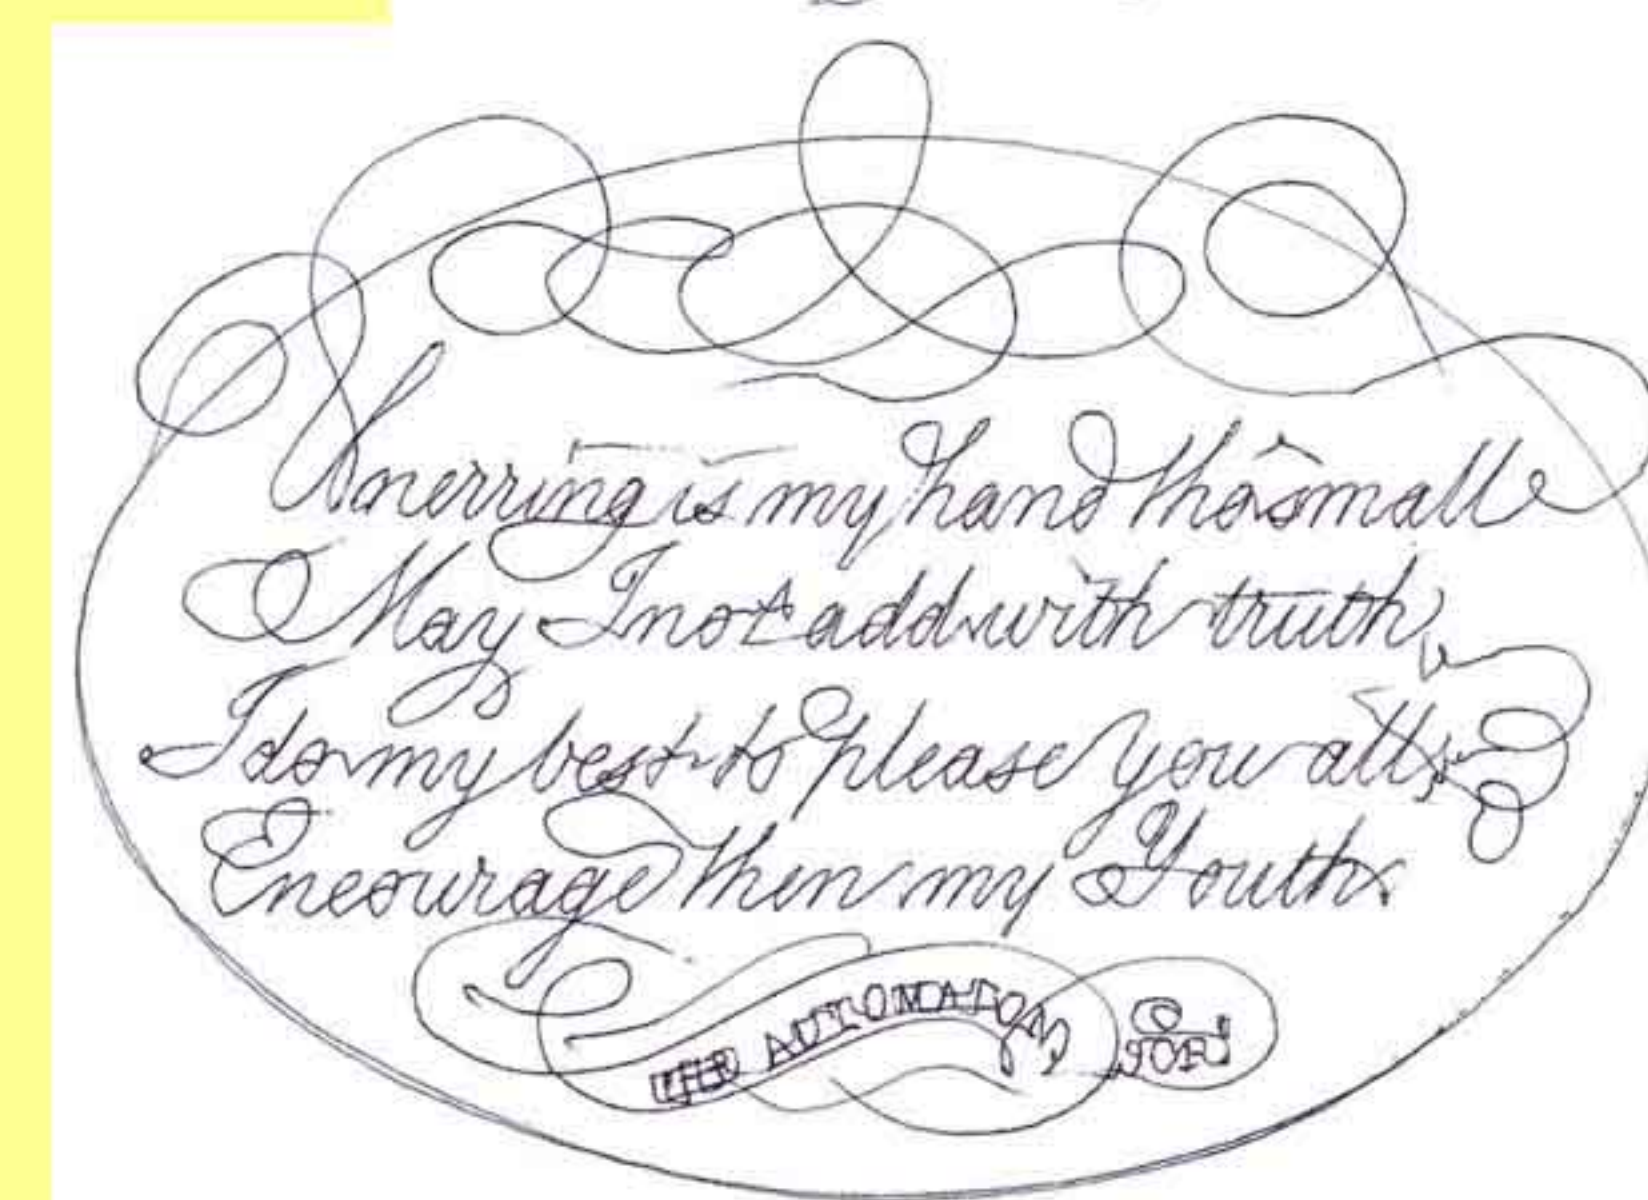 Unerring is my hand tho small
May I not add with truth
I do my best to please you all
Encourage then my Youth.
THE AUTOMATON